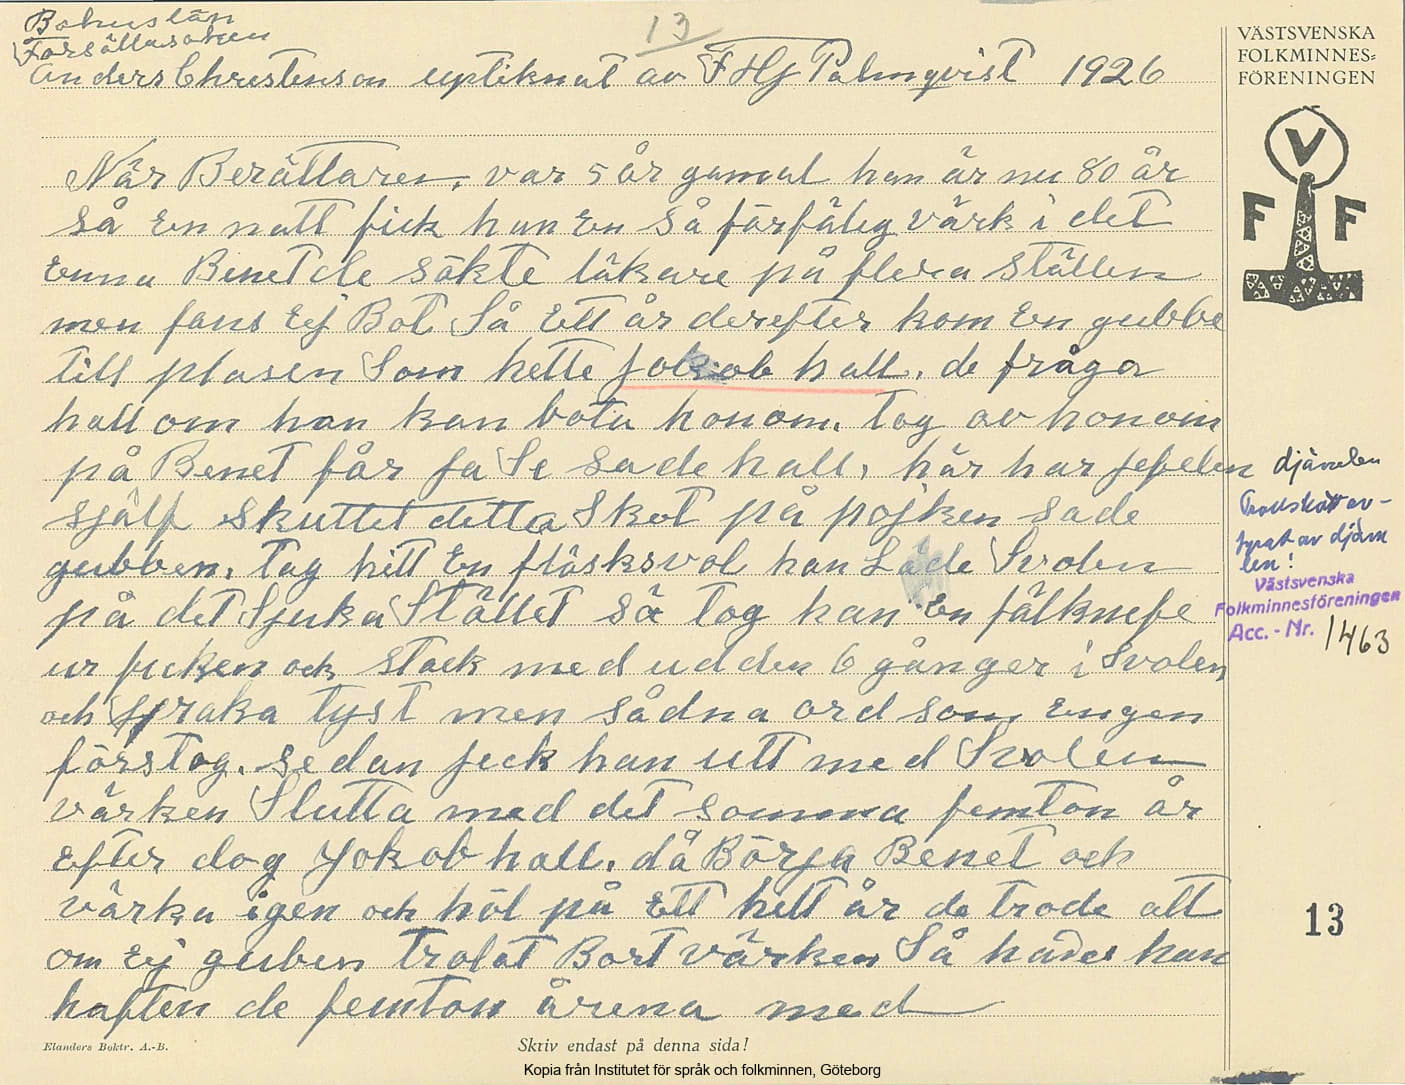 Bohuslän
Forsällasoken
13
Anders Christenson uptiknat av F Hj Palmqvist 1926
VÄSTSVENSKA
FOLKMINNES=
FÖRENINGEN
V
F F
När Berättaren, var 5 år gamal han är nu 80 år
så En natt fick han En så förfälig värk i det
Enna Benet de sökte läkare på flera ställen
men fans Ej Bot Så Ett år derefter kom En gubbe
till plasen Som hette Jakob hall. de fråga
hall om han kan bota honom. tag av honom
på Benet får ja Se sade hall, här har jefelen
själf skuttet detta Skot på pojken sade
gubben. tag hitt En fläsksvol han Lade Svolen
på det Sjuka Stället så tog han En fälknefe
ur ficken och stack med udden 6 gånger i Svolen
och spraka tyst men sådna ord som Engen
förstog. sedan feck han utt med Svolen
värken Slutta med det somma femton år
Efter dog Jokob hall. då Börja Benet och
värka igen och höl på Ett helt år de trode att
om Ej guben trolat Bort värken Så hade han
haften de femton årena med
djävulen
Trollskott av-
fyrat av djävu
len!
Västsvenska
Folkminnesföreningen
Acc. - Nr. 1463
13
Elanders Boktr. A.-B.
Skriv endast på denna sida!
Kopia från Institutet för språk och folkminnen, Göteborg